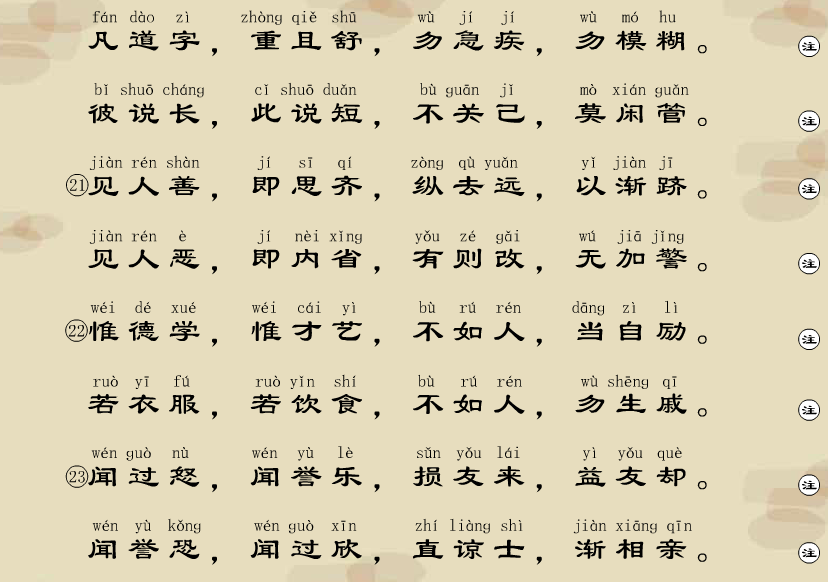 fán dào zì zhòng qiě shū wù jí jí wù mó hu
凡道字，重且舒，勿急疾，勿模糊。 注
bǐ shuō cháng cǐ shuō duǎn bù guān jǐ mò xián guǎn
彼说长，此说短，不关己，莫闲管。 注
jiàn rén shàn jí sī qí zòng qù yuǎn yǐ jiàn jī
㉑见人善，即思齐，纵去远，以渐跻。 注
jiàn rén è jí nèi xǐng yǒu zé gǎi wú jiā jǐng
见人恶，即内省，有则改，无加警。 注
wéi dé xué wéi cái yì bù rú rén dāng zì lì
㉒惟德学，惟才艺，不如人，当自励。 注
ruò yī fú ruò yǐn shí bù rú rén wù shēng qī
若衣服，若饮食，不如人，勿生戚。 注
wén guò nù wén yù lè sǔn yǒu lái yì yǒu què
㉓闻过怒，闻誉乐，损友来，益友却。 注
wén yù kǒng wén guò xīn zhí liàng shì jiàn xiāng qīn
闻誉恐，闻过欣，直谅士，渐相亲。 注